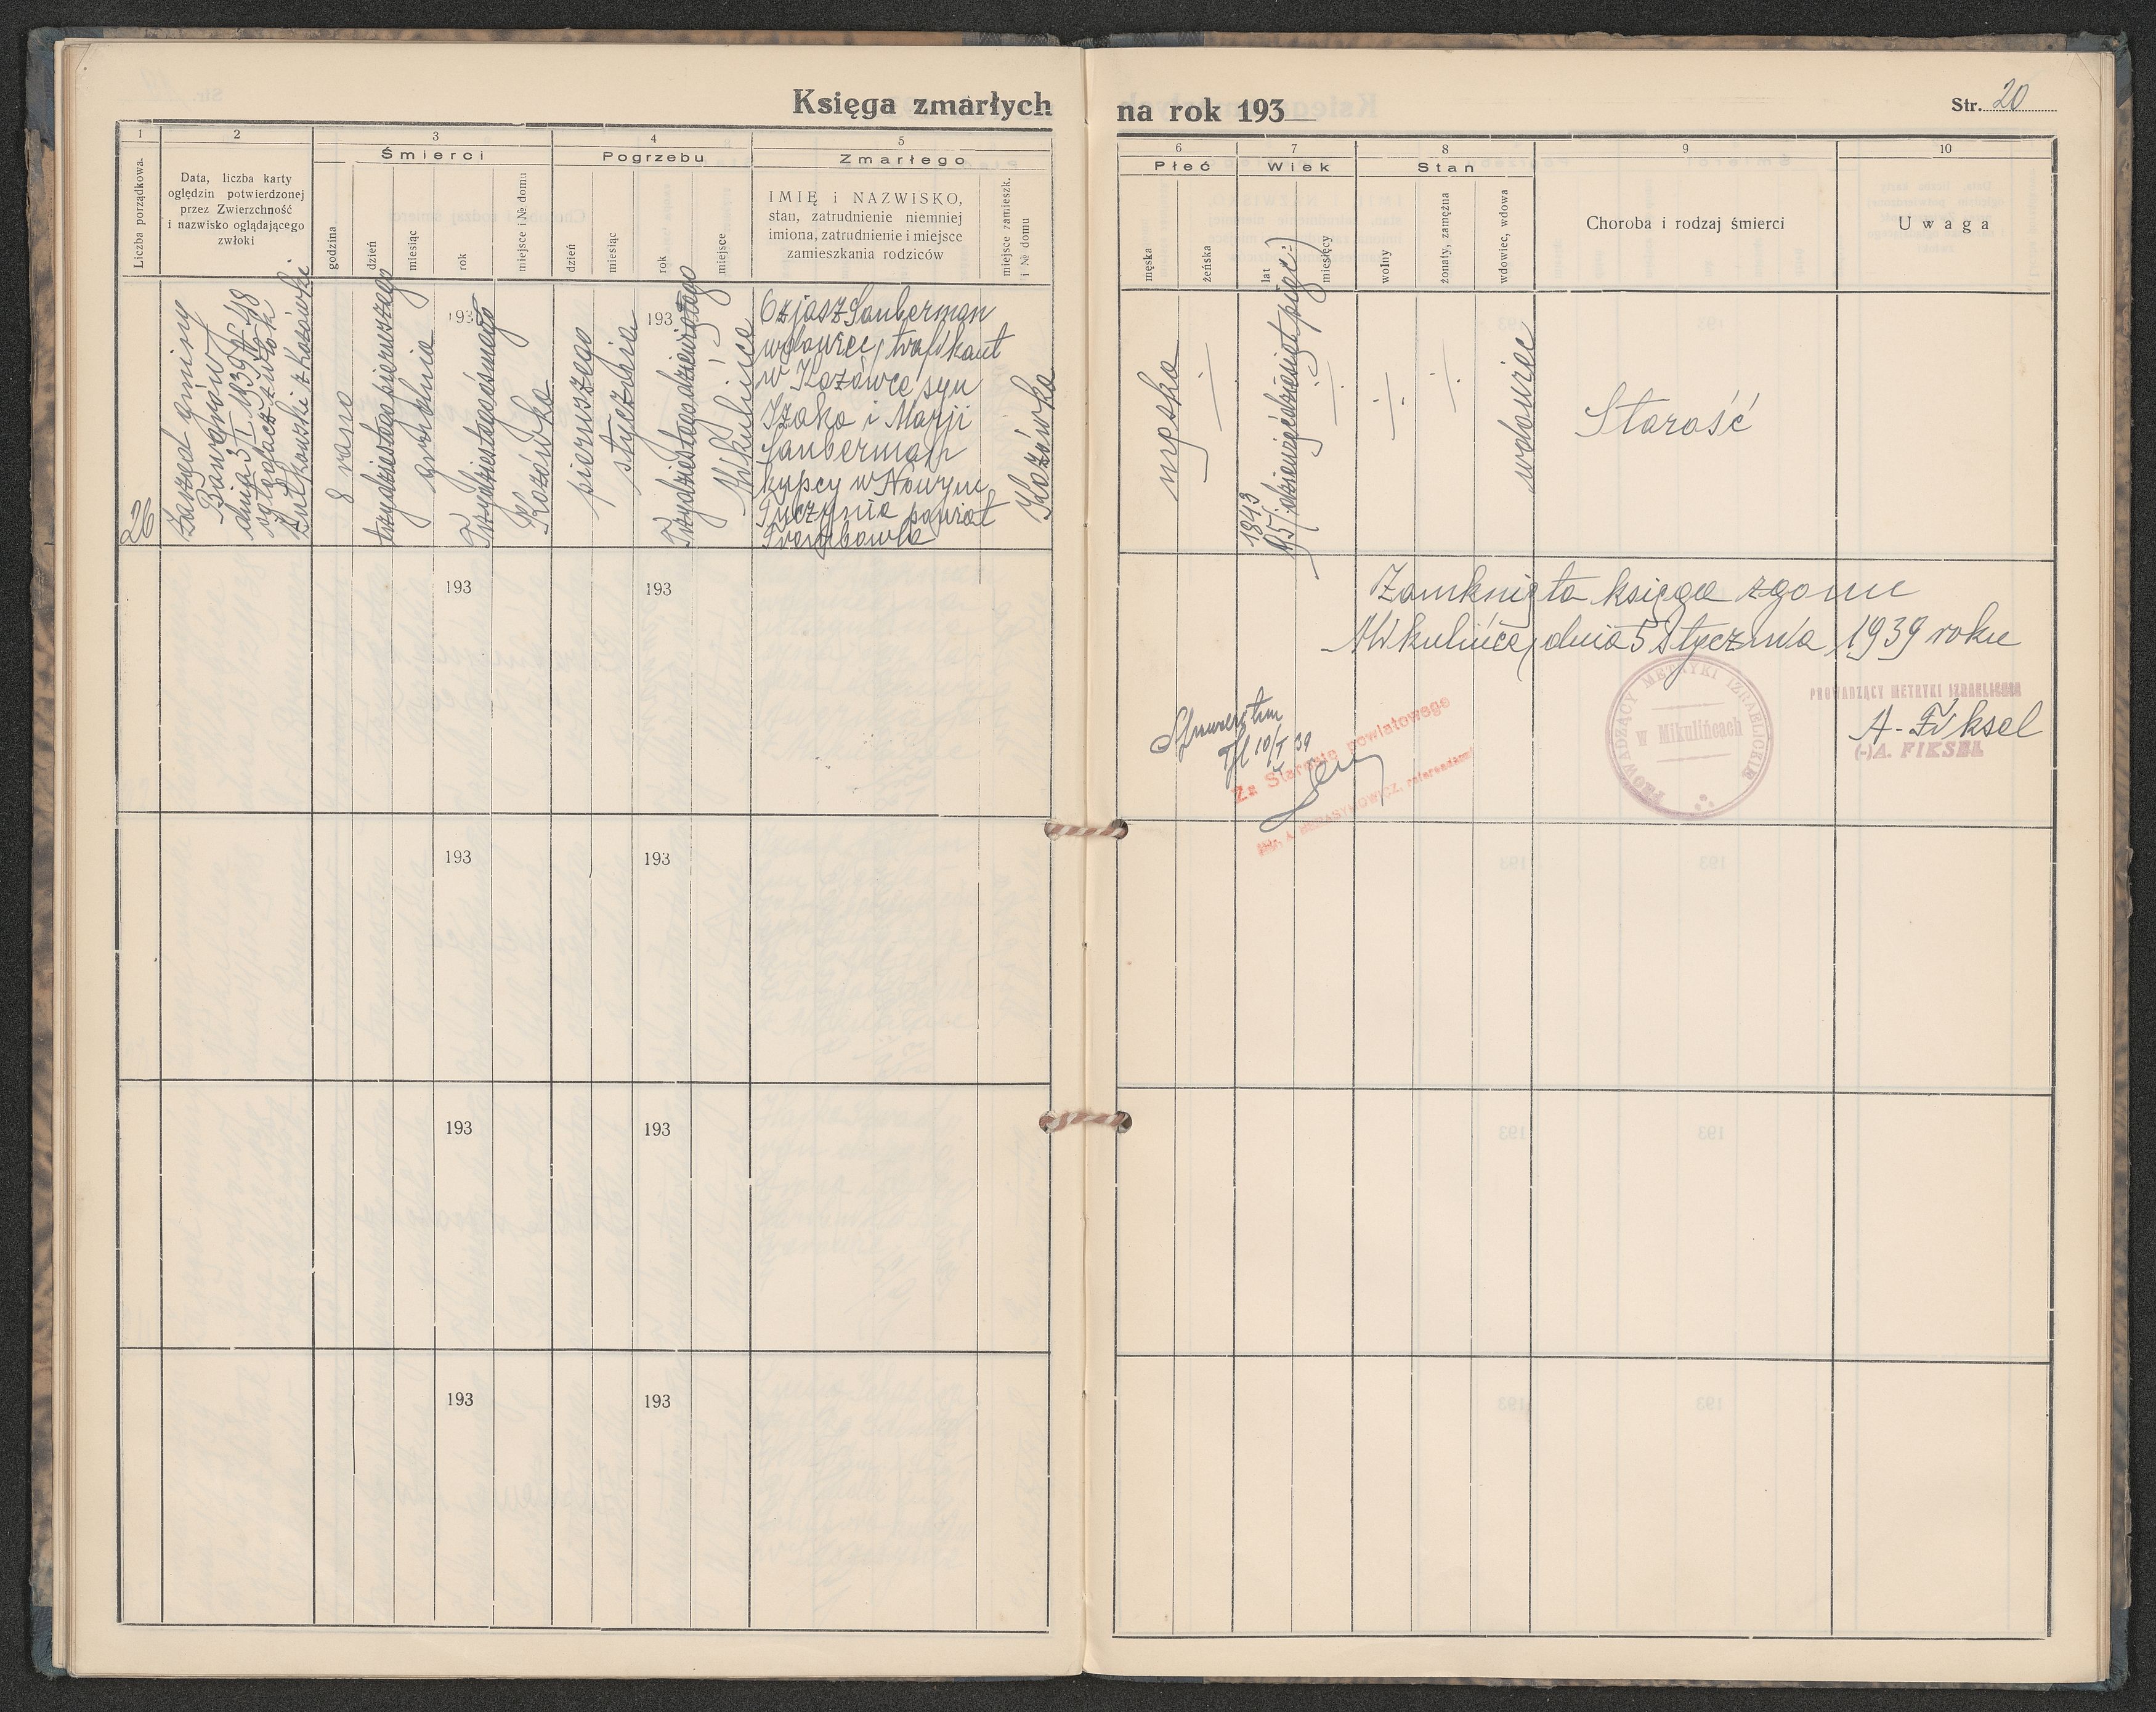 Księga zmarłych
na rok 193
Str. 20
1
2
3
4
5
Liczba porządkowa.
Data, liczba karty
oględzin potwierdzonej
przez Zwierzchność
i nazwisko oglądającego
zwłoki
Śmierci
godzina
dzień
miesiąc
rok
miejsce i № domu
Pogrzebu
dzień
miesiąc
rok
miejsce
Zmarłego
IMIĘ i NAZWISKO,
stan, zatrudnienie niemniej
imiona, zatrudnienie i miejsce
zamieszkania rodziców
miejsce zamieszk.
i № domu
6
7
8
9
10
Płeć
męska
żeńska
Wiek
lat
miesięcy
Stan
wolny
żonaty, zamężna
wdowiec, wdowa
Choroba i rodzaj śmierci
Uwaga
26
Zarząd gminy
Baworów
dnia 3/I 1939 № 48
oglądacz zwłok
z Kozówki
8 rano
trzydziestego pierwszego
grudnia
193
Trzydziestego ósmego
Kozówka
pierwszego
stycznia
193
Trzydziestego dziewiątego
Mikulińce
Ozjasz Sauberman
wdowiec, trafikant
w Kozówce syn
Izaka i Marji
Sauberman
kupcy w Nowym
powiat
Trembowla
Kozówka
męska
1843
95/: dziewięćdziesiąt pięć :/
wdowiec
Starość
193
193
Zamknięta księga zgonu
Mikulińce, dnia 5 Stycznia 1939 roku
PROWADZĄCY METRYKI IZRAELICKIE
w Mikulińcach
PROWADZĄCY METRYKI IZRAELICKIE
A. Fiksel
(-) A. FIKSEL
10/I 39
Za Starostę powiatowego
193
193
193
193
193
193